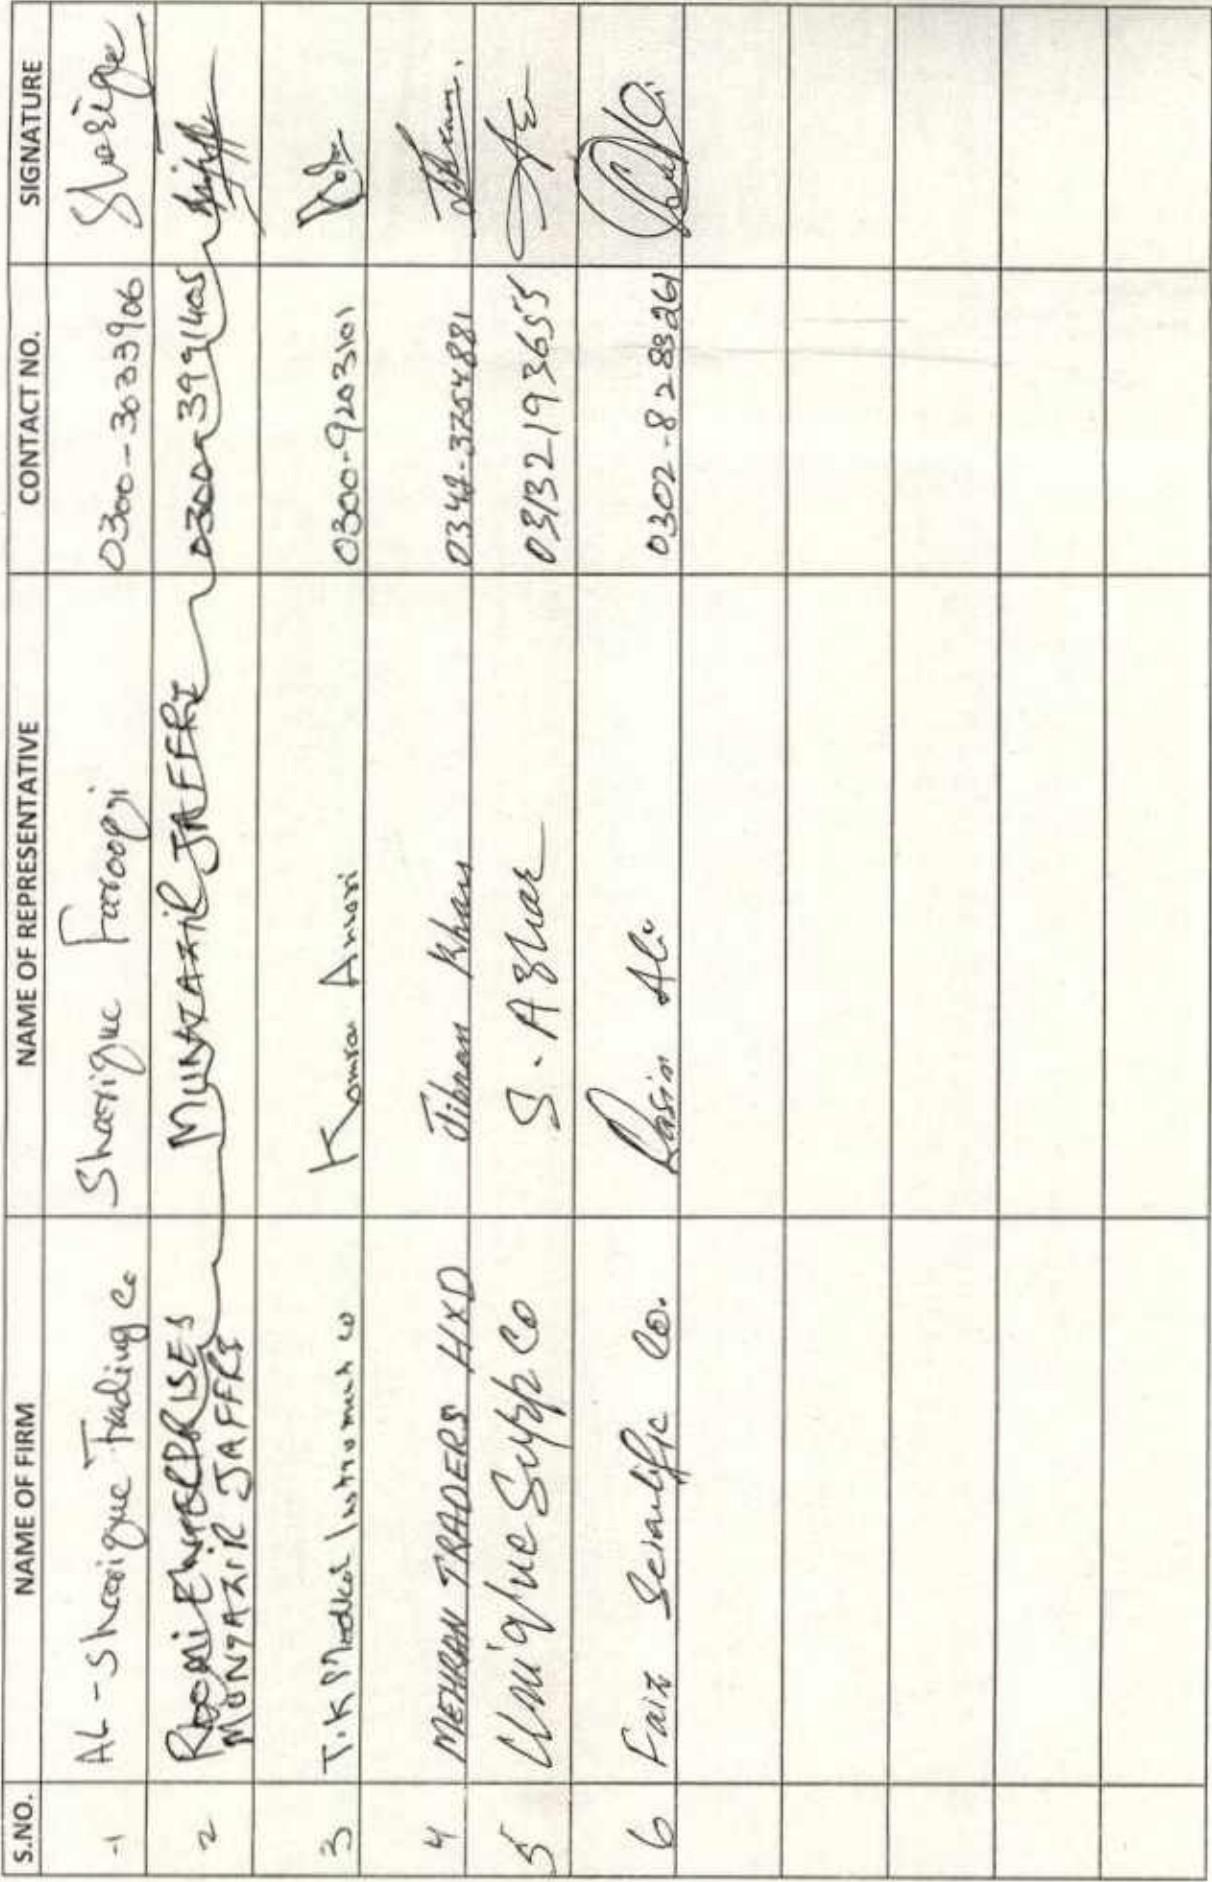 S.NO. NAME OF FIRM NAME OF REPRESENTATIVE CONTACT NO. SIGNATURE
1 AL-Sharique Trading Co Sharique Farooqi 0300-3033906 Sharique
2 Roomi ENTERPRISES MUNTAZIR JAFFRI 0300-3991405
MUNTAZIR JAFFRI
3 T.K Medical Instrument co Kamran Ansari 0300-9203101
4 MEHRAN TRADERS HXD Jibran Khan 0342-3754881
5 Unique Supp Co S. Azhar 03132193655
6 Faiz Scientific Co. Rasim Ali 0302-8283261